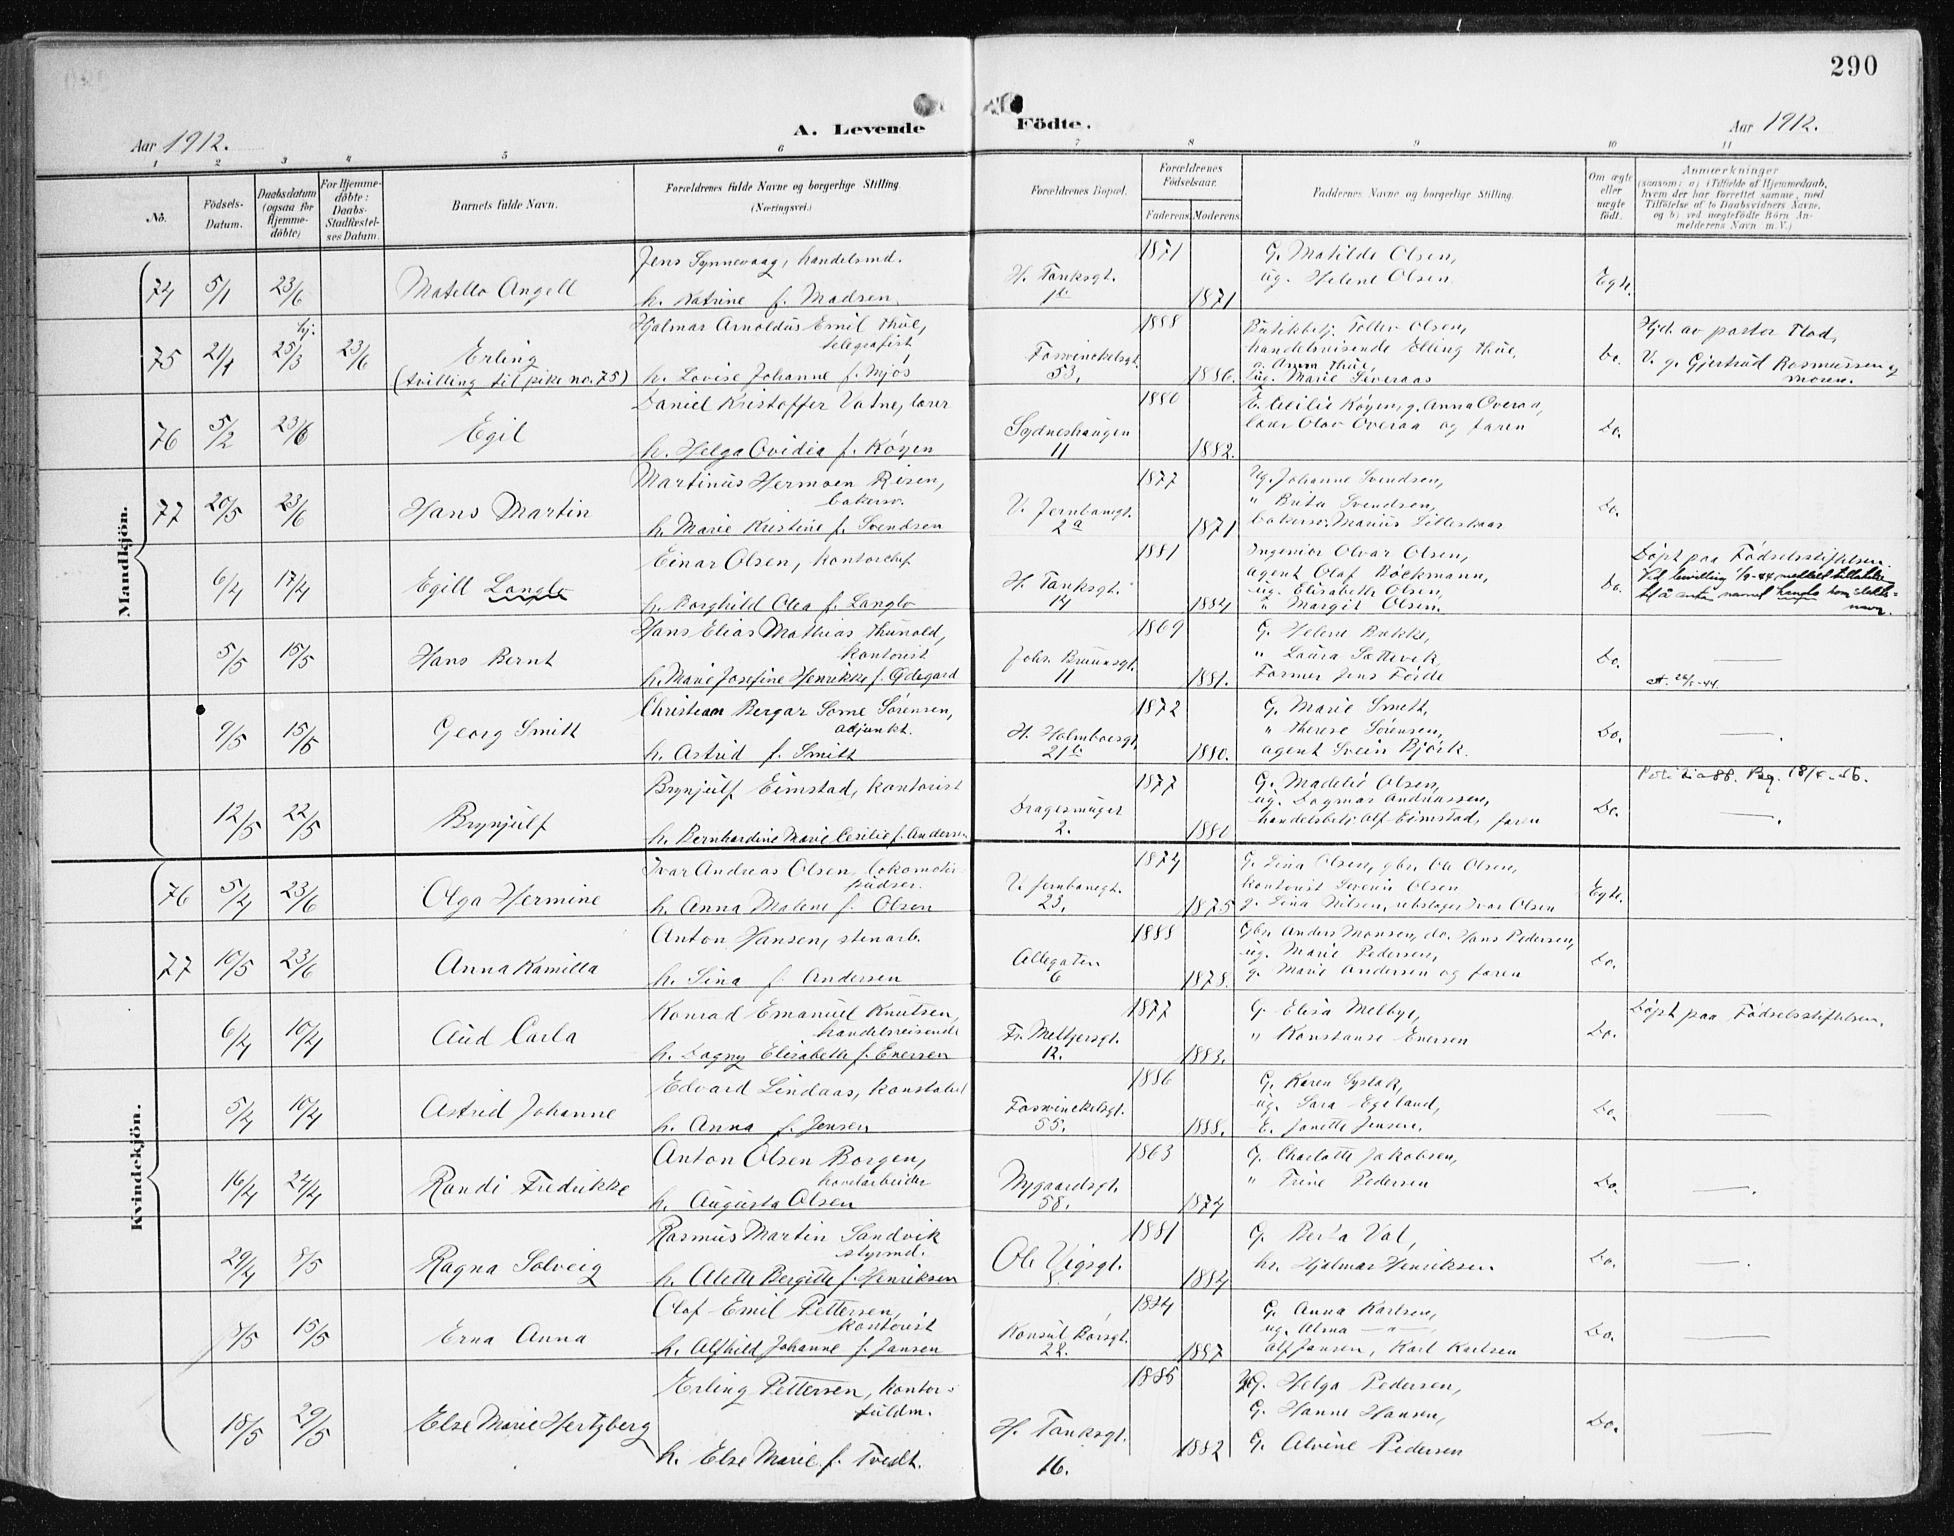 290
A. Levende Födte.
Aar 1912.
Aar 1912.
1 2 3 4 5 6 7 8 9 10 11
No.
Födsels-Datum.
Daabsdatum (ogsaa for Hjemme-döbte)
For Hjemme-döbte: Daabs-Stadfæstel-ses Datum.
Barnets fulde Navn.
Forældrenes fulde Navne og borgerlige Stilling (Næringsvei.)
Forældrenes Bopæl.
Forældrenes Födselsaar.
Faderens. Moderens.
Faddernes Navne og borgerlige Stilling.
Om ægte eller uægte födt.
Anmærkninger
(saasom: a) i Tilfælde af Hjemmedaab, hvem der har forrettet samme, med Tilföielse af to Daabsvidners Navne, og b) ved uægtefödte Börn An-melderens Navn m. V.)
Mandkjön.
74 5/1 23/6 Matello Angell
Jens Synnevaag, handelsmd.
h. Katrine f. Madsen.
H. Tanksgt. 1b
1871 1871
G. Matilde Olsen,
ug. Helene Olsen
Egte.
75 21/1 hj. 25/3 23/6 Erling
(tvilling til pike no. 75)
Hjalmar Arnoldus Emil Thue, telegrafist
h. Lovise Johanne f. Mjøs
Fosswinckelsgt. 53.
1888 1886.
Butikkbetj. Tollev Olsen,
handelsreisende Elling Thue,
g. Anna Thue,
ug. Marie Siveraas
Do.
Hjd. av pastor Flod,
V. g. Gjertrud Rasmussen og moren.
76 5/2 23/6 Egil
Daniel Kristoffer Vatne, lærer
h. Helga Ovidia f. Køyen
Sydneshaugen 11
1880 1882.
E. Cecilie Køyen, g. Anna Overaa,
lærer Olav Overaa og faren
Do.
77 20/5 23/6 Hans Martin
Martinus Hermoen Risen, bakersv.
h. Marie Kristine f. Svendsen
V. Jernbanegt. 2a
1877 1871
Ug. Johanne Svendsen,
" Brita Svendsen,
bakersv. Marius Lilleskaar
Do.
6/4 17/4 Egill Langlo
Einar Olsen, kontorchef
h. Borghild Olea f. Langlo
H. Tanksgt. 14
1881 1884
Ingeniør Olvar Olsen,
agent Olaf Bøckmann,
ug. Elisabeth Olsen,
" Margit Olsen.
Do.
Døpt paa Fødselsstiftelsen.
5/5 15/5 Hans Bernt
Hans Elias Mathias Thunold, kontorist
h. Marie Josefine Henrikke f. Ødegaard
Johs. Bruunsgt. 11
1869 1881.
G. Helene Bakke,
" Laura Sættevik,
Former Jens Førde
Do.
9/5 15/5 Georg Smitt
Christian Bergar Some Sørensen, adjunkt.
h. Astrid f. Smitt
H. Holmboesgt. 21b
1872 1880.
G. Marie Smitt,
" Therese Sørensen,
agent Svein Bjørk.
Do.
12/5 22/5 Brynjulf
Brynjulf Eimstad, kontorist
h. Bernhardine Marie Cecilie f. Andersen
Dragesmuget 2.
1877 1880
G. Madelie Olsen,
ug. Dagmar Andreassen,
handelsbetj. Alf Eimstad, faren
Do.
Kvindekjön.
76 5/4 23/6 Olga Hermine
Ivar Andreas Olsen, lokomotiv pudser.
h. Anna Malene f. Olsen
V. Jernbanegt. 23.
1874 1875
G. Lina Olsen, gbr. Ole Olsen,
kontorist Severin Olsen
g. Lina Nilsen, rebslager Ivar Olsen
Egte.
77 10/5 23/6 Anna Kamilla
Anton Hansen, stenarb.
h. Sina f. Andersen
Allegaten 6
1888 1878.
Gbr. Anders Monsen, do. Hans Pedersen,
ug. Marie Pedersen,
g. Marie Andersen og faren
Do.
6/4 10/4 Aud Carla
Konrad Emanuel Knutsen, handelsreisende
h. Dagny Elisabeth f. Enersen
Fr. Meltzersgt. 12.
1877 1883.
G. Elisa Melbye,
" Konstanse Enersen
Do.
Døpt paa Fødselsstiftelsen.
5/4 10/4 Astrid Johanne
Edvard Lindaas, konstabel
h. Anna f. Jensen
Foswinckelsgt. 55.
1886 1888.
G. Karen Systak,
ug. Sara Egeland,
E. Janette Jensen.
Do.
16/4 24/4 Randi Fredrikke
Anton Olsen Borgen, havearbeider
h. Augusta Olsen
Nygaardsgt. 58.
1863 1874
G. Charlotte Jakobsen,
" Trine Pedersen
Do.
29/4 8/5 Ragna Solveig
Rasmus Martin Sandvik styrmd.
h. Alette Bergitte f. Henriksen
Ole Vigsgt.
1881 1884
G. Berta Vat,
hr. Hjalmar Henriksen.
Do.
3/5 15/5 Erna Anna
Olaf Emil Pettersen, kontorist
h. Alfhild Johanne f. Jansen
Konsul Børsgt. 22.
1884 1887
G. Anna Karlsen,
ug. Alma — " —
Alf Jansen, Karl Karlsen
Do.
18/5 29/5 Else Marie Hertzberg
Erling Pettersen, kontor-fuldm.
h. Else Marie f. Tvedt.
H. Tanksgt. 16.
1885 1882
G. Helga Pedersen,
G. Hanne Hansen,
G. Alvine Pedersen
Do.